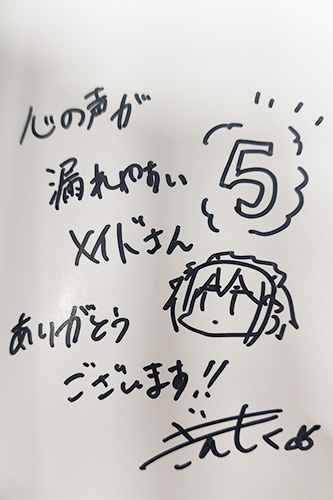 心の声が
漏れやすい
メイドさん
5
ありがとう
ございます!!